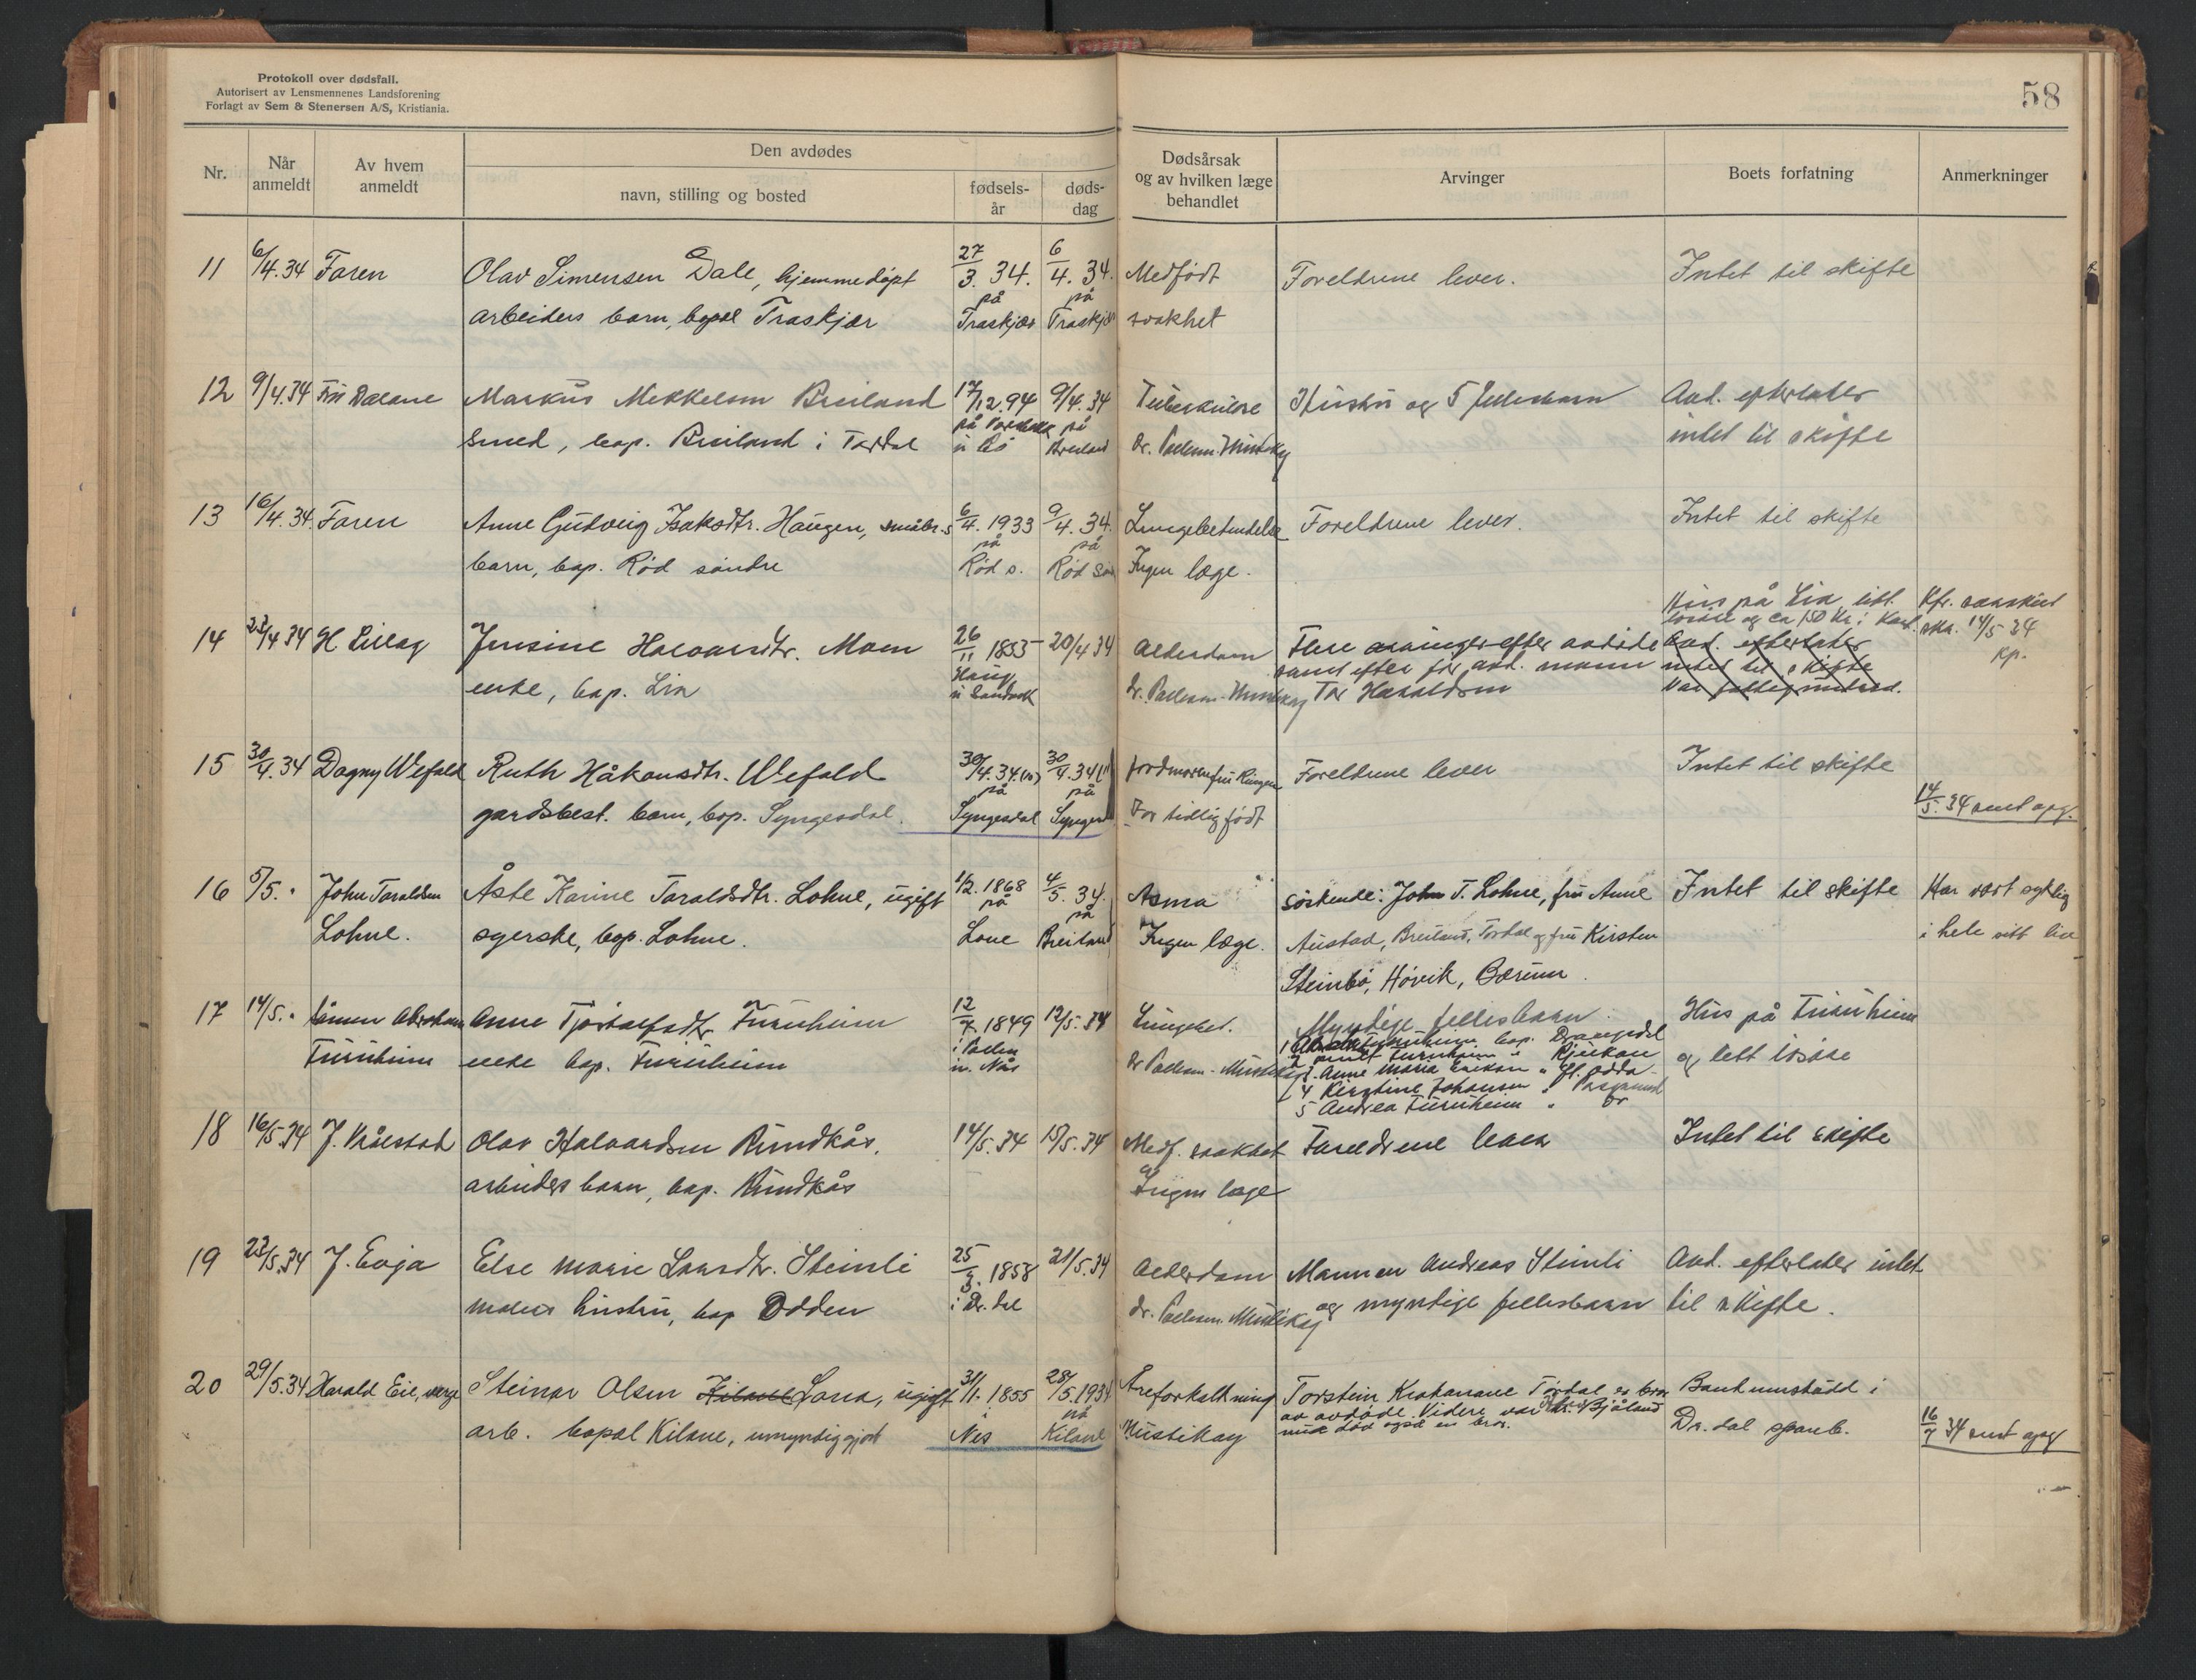 Protokoll over dødsfall.
Autorisert av Lensmennenes Landsforening
Forlagt av Sem & Stenersen A/S, Kristiania.
58
Nr.
Når anmeldt
Av hvem anmeldt
Den avdødes
navn, stilling og bosted
fødsels-år
døds-dag
Dødsårsak og av hvilken læge behandlet
Arvinger
Boets forfatning
Anmerkninger
11 6/4.34 Faren Olav Simensen Dale, hjemmedøpt 27/3. 34. 6/4. 34. Medfødt Foreldrene lever. Intet til skifte
på på
arbeiders barn, bopæl Traskjær Traskjær Traskjær svakhet
12 9/4.34 Dalane Markus Mekkelsen Breiland 17/12.94 9/4.34 Tuberkulose Hustru og 5 fellesbarn Avd. efterlater
på på
smed, bop. Breiland i Tørdal i Bø Breiland Dr. intet til skifte
13 16/4.34. Faren Anne Gudveig Isaksdtr. Haugen, småbr.s 6/4. 1933 9/4. 34. Lungebetendelse Foreldrene lever. Intet til skifte
på på
barn, bop. Rød søndre Rød s. Rød Ingen læge.
Hus på Lia litt Kfr.
løsøre og ca 150 kr. i 14/5 34
14 23/4 34 H Lilleg Jensine Halvorsdtr. Moen 26/11 1853 20/4 34 Alderdom Flere arvinger efter avdøde Avd. efterlater kp.
samt efter før avd. mann intet til skifte
enke, bop. Lia Haug i Sandvik Tor Haraldsen Var fattigunderst.
15 30/4.34 Dagny Wefald Ruth Håkonsdtr. Wefald 30/4.34. 30/4.34 Jordmoren fru Foreldrene lever Intet til skifte
på på
gardsbest. barn, bop. Syngesdal. Syngesdal for tidlig født 14/5.34 sent opg.
16 5/5. " John Taraldsen Åste Karine Taraldsdtr. Lohne, ugift 1/2. 1868 4/5. 34. Asma søskende: John T. Lohne, fru Anne Intet til skifte Har vært sykelig
på på
Lohne. syerske, bop. Lohne. Lone Breiland Ingen læge. Austad, Breiland, Tørdal og fru Kirsten i hele sitt liv
Steinbø, Høvik, Bærum.
17 14/5. " Abraham Anne Furuheim 12/7. 1849 12/5.34 Lungebet. Myndige fellesbarn: Hus på Furuheim
1 Furuheim bop. Drangedal
Furuheim enke bop. Furuheim 2 Furuheim " Rjukan og litt løsøre
3 Anne Maria " Odda
4 Kirstine Johansen " Porsgrund
5 Andrea Furuheim "
18 16/5.34 J. Vrålstad Olav Halvorsen Rundkås, 14/5.34 15/5.34 Medf. svakhet Foreldrene lever Intet til skifte
arbeiders barn, bop. Rundkås Ingen læge
19 23/5.34 J. Evja Else Marie Larsdtr. Steinli 25/3. 1858 21/5.34 Alderdom Mannen Andreas Steinli Avd. efterlater intet
hustru, bop Odden i Dr.dal og myndige fellesbarn til skifte.
20 29/5.34 Harald Eie, verge Steinar Olsen Kilane Lona, ugift 31/1. 1855 28/5.1934 Åreforkalkning Torstein Tørdal er bror Bankinnskudd i
av avdøde. Videre var Bjåland
i på
arb. bopæl Kilane, umyndiggjort Nes Kilane død også en bror. Dr.dal spareb. 16/7 34 sent opg